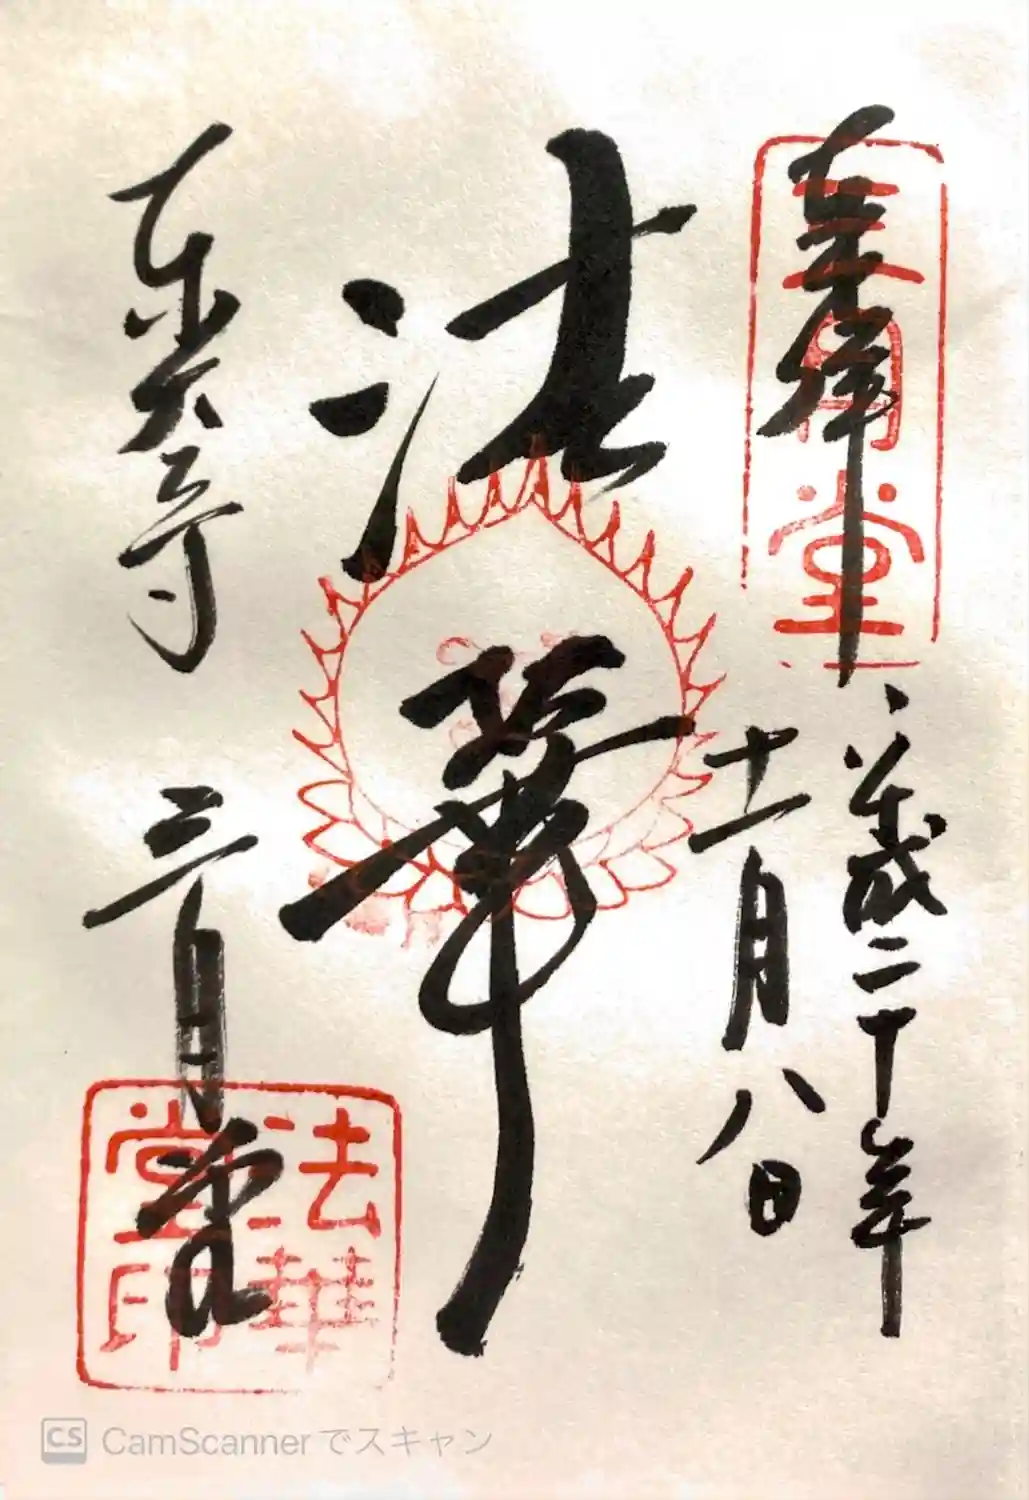 奉拝
三月堂
平成二十年
十一月八日
法華
東大寺
三月堂
法華
堂印
CS CamScannerでスキャン